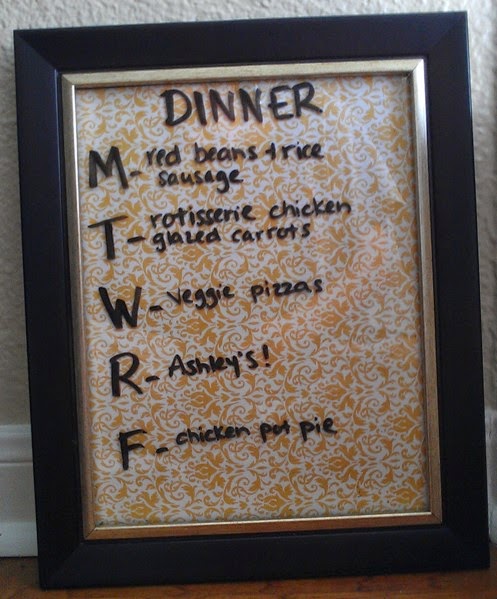 DINNER
M- red beans + rice
sausage
T- rotisserie chicken
glazed carrots
W- veggie pizzas
R- Ashley's!
F- chicken pot pie